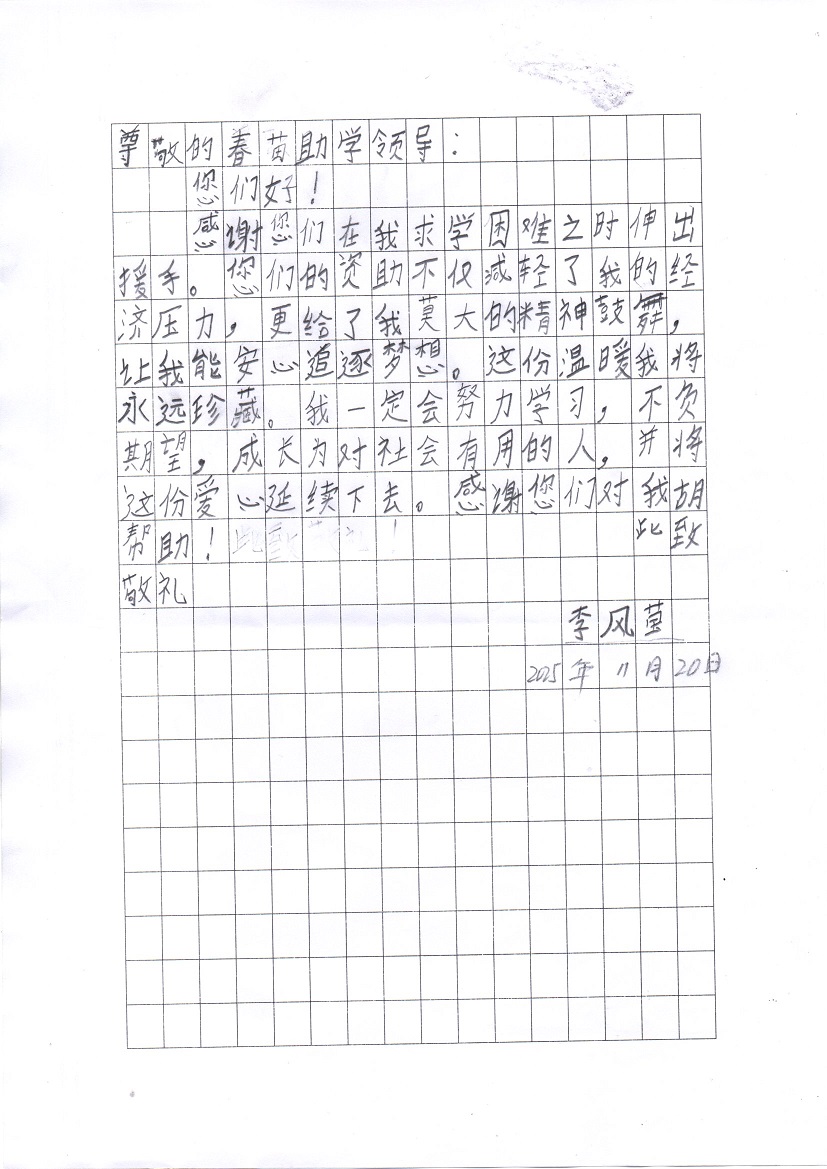 尊敬的春苗助学领导：
您们好！
感谢您们在我求学困难之时伸出
援手。您们的资助不仅减轻了我的经
济压力，更给了我莫大的精神鼓舞，
让我能安心追逐梦想。这份温暖我将
永远珍藏。我一定会努力学习，不负
期望，成长为对社会有用的人，并将
这份爱心延续下去。感谢您们对我胡
帮助！此致
敬礼
李风萤
2025年11月20日